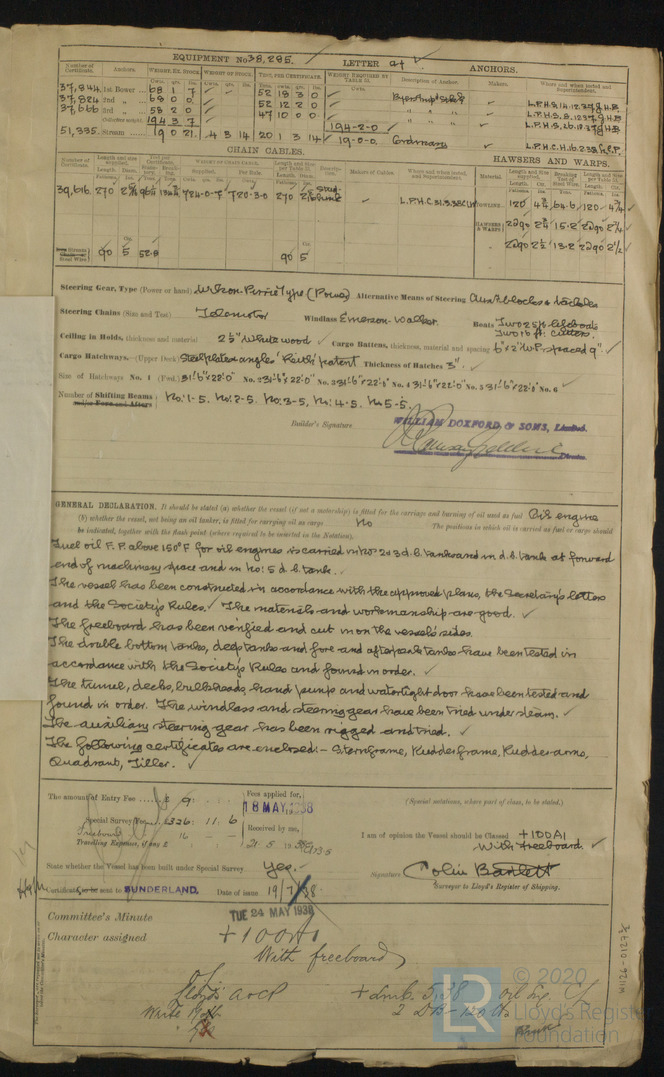 EQUIPMENT No 38,285. LETTER at ANCHORS.
Number of Certificate. Anchors. WEIGHT EX. STOCK. WEIGHT OF STOCK. TEST, PER CERTIFICATE. WEIGHT REQUIRED BY TABLE 31. Description of Anchor. Makers. Where and when tested and Superintendent.
37,844 1st Bower 68 1 7 52 18 3 0 L.P.H.S. 14.12.37 J.H.B
37,824 2nd " 68 0 0 52 12 2 0 " " " L.P.H.S. 8.12.37 J.H.B
37,666 3rd " 58 2 0 47 10 0 0 " " " L.P.H.S. 26.10.37 J.H.B
Collective weight 194 3 7 194-2-0
51,335 Stream 19 0 21 4 3 14 20 1 3 14 19-0-0. Ordinary L.P.H.C.H.
CHAIN CABLES. HAWSERS AND WARPS.
Number of Certificate. WEIGHT OF CHAIN CABLE. Makers of Cables. Where and when tested, and Superintendent. Material.
39,616 270 270 L.P.H.C. 31.3.38 TOWLINE 120 64.6 120
HAWSERS & WARPS 2@90 2¾ 15.2 2@90 2¾
" 2@90 2½ 13.2 2@90 2½
Steel Wire 90 5 52.8 90 5
Steering Gear, Type (Power or hand) Wilson-Pirrie Type (Power) Alternative Means of Steering Aux. blocks & tackles
Steering Chains (Size and Test) Telemotor Windlass Emerson-Walker. Boats Two 25 ft. lifeboats
Two 16 ft. cutters.
Ceiling in Holds, thickness and material 2½" Whitewood Cargo Battens, thickness, material and spacing 6"x2" W.P. spaced 9".
Cargo Hatchways.—(Upper Deck) Steel plates & angles 'Keith's' patent Thickness of Hatches 3".
Size of Hatchways No. 1 (Fwd.) 31'-6"x22'-0" No. 2 31'-6"x22'-0" No. 3 31'-6"x22'-0" No. 4 31'-6"x22'-0" No. 5 31'-6"x22'-0" No. 6
Number of Shifting Beams and/or Fore and Afters No:1-5. No:2-5. No:3-5, No:4-5. No:5-5.
Builder's Signature WILLIAM DOXFORD & SONS, Limited.
GENERAL DECLARATION. It should be stated (a) whether the vessel (if not a motorship) is fitted for the carriage and burning of oil used as fuel Oil engine
(b) whether the vessel, not being an oil tanker, is fitted for carrying oil as cargo No The positions in which oil is carried as fuel or cargo should
be indicated, together with the flash point (where required to be inserted in the Notation).
Fuel oil F.P. above 150°F for oil engines is carried in No: 2 & 3 d.b. tanks and in d.b. tank at forward
end of machinery space and in No: 5 d.b. tank.
The vessel has been constructed in accordance with the approved plans, the Secretary's letters
and the Society's Rules. The materials and workmanship are good.
The freeboard has been verified and cut in on the vessel's sides.
The double bottom tanks, deep tanks and fore and after peak tanks have been tested in
accordance with the Society's Rules and found in order.
The tunnel, decks, bulkheads, hand pump and watertight door have been tested and
found in order. The windlass and steering gear have been tried under steam.
The auxiliary steering gear has been rigged and tried.
The following certificates are enclosed:- Sternframe, Rudder frame, Rudder arms,
Quadrant, Tiller.
The amount of Entry Fee £ 9 : Fees applied for,
18 MAY 1938
(Special notations, where part of class, to be stated.)
Special Survey Fee £326 : 11 . 6
Freeboard 16 — — Received by me,
Travelling Expenses, if any £ 21.5 1938
I am of opinion the Vessel should be Classed +100A1
With freeboard.
State whether the Vessel has been built under Special Survey Yes. Signature Colin Bartlett
Surveyor to Lloyd's Register of Shipping.
Certificate to be sent to SUNDERLAND. Date of issue 19/7/38
Committee's Minute TUE 24 MAY 1938
Character assigned +100A1
With freeboard
Lloyd's A & CP + LMC 5,38 Oil Eng. CL
2 DB - 120 lb
© 2020
LR Lloyd's Register
Foundation